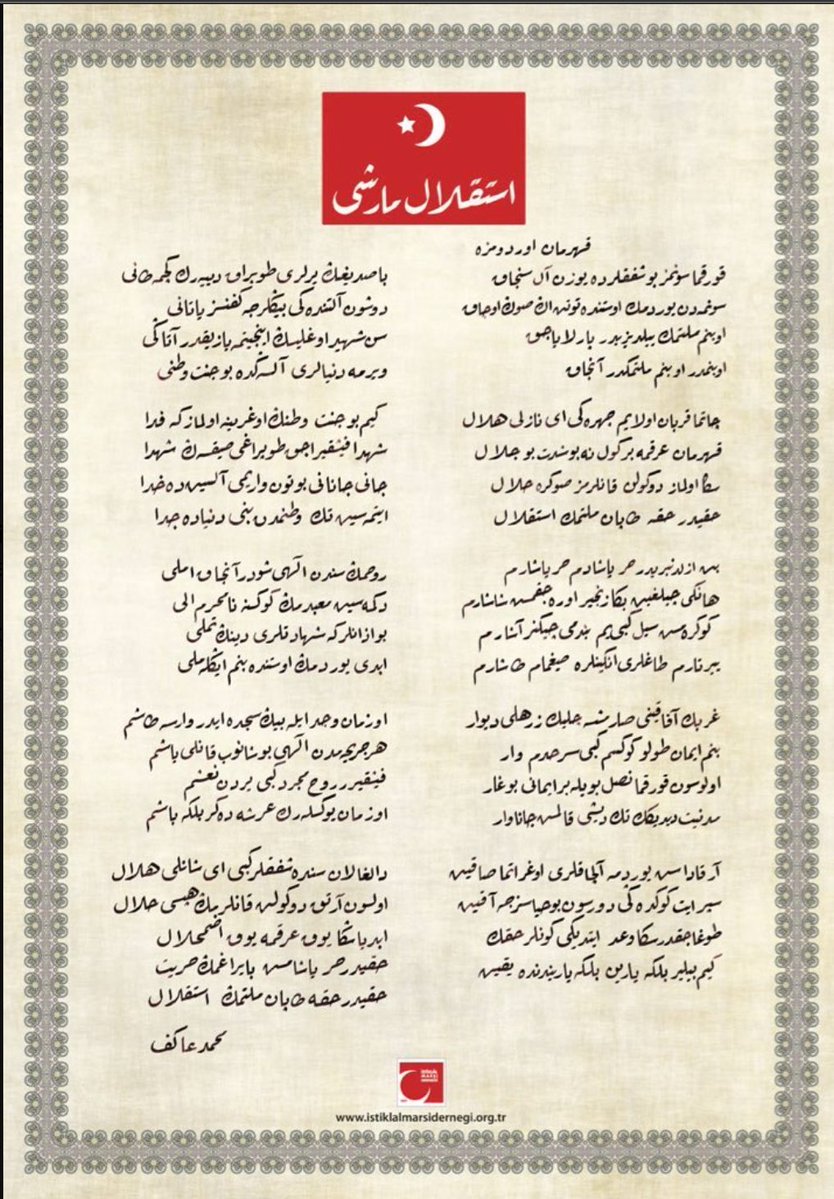 استقلال مارشی
قهرمان اوردومزه
قورقما سونمز بو شفقلرده یوزن آل سنجاق
سونمه‌دن یوردمڭ اوستنده توتن اڭ صوڭ اوجاق
او بنم ملتمڭ ییلدیزیدر پارلایاجق
او بنمدر او بنم ملتمڭدر آنجاق
چاتما قربان اولایم چهره‌ڭی ای نازلی هلال
قهرمان عرقمه بر گول نه بو شدت بو جلال
سڭا اولماز دوکولن قانلرمز صوڭره حلال
حقیدر حقه طاپان ملتمڭ استقلال
بن ازلدنبریدر حر یاشادم حر یاشارم
هانگی چیلغین بڭا زنجیر اوره‌جقمش شاشارم
کوکره‌مش سیل کبی‌یم بندمی چیگنر آشارم
ییرتارم طاغلری انگینلره صیغمام طاشارم
غربڭ آفاقنی صارمشسه چلیك زرهلی دیوار
بنم ایمان طولو گوکسم کبی سرحدم وار
اولوسون قورقما نصل بویله بر ایمانی بوغار
مدنیت دیدیگڭ تك دیشی قالمش جاناوار
آرقاداش یوردمه آلچاقلری اوغراتما صاقین
سپر ایت گوکده‌ڭی دورسون بو حیاسزجه آقین
طوغاجقدر سڭا وعد ایتدیگی گونلر حقڭ
کیم بیلیر بلکه یارین بلکه یاریندنده یقین
باصدیغڭ یرلری طوپراق دییه‌رك گچمه طانی
دوشون آلتنده‌کی بیڭلرجه کفنسز یاتانی
سن شهید اوغلیسڭ اینجیتمه یازیقدر آتاڭی
ویرمه دنیالری آلسه‌ڭده بو جنت وطنی
کیم بو جنت وطنڭ اوغرینه اولماز که فدا
شهدا فیشقیراجق طوپراغی صیقسه‌ڭ شهدا
جانی جانانی بوتون واریمی آلسین ده خدا
ایتمه‌سین تك وطنمدن بنی دنیاده جدا
روحمڭ سندن الهی شودر آنجاق املی
دگمه‌سین معبدمڭ گوکسنه نامحرم الی
بو اذانلر که شهادتلری دینڭ تملی
ابدی یوردمڭ اوستنده بنم ایڭله‌ملی
او زمان وجد ایله بیڭ سجده ایدر وارسه طاشم
هر جریحه‌مدن الهی بوشانوب قانلی یاشم
فیشقیرر روح مجرد کبی یردن نعشم
او زمان یوکسله‌رك عرشه دگر بلکه باشم
دالغالان سنده شفقلر کبی ای شانلی هلال
اولسون آرتق دوکولن قانلرمڭ هپسی حلال
ابدیا سڭا یوق عرقمه یوق اضمحلال
حقیدر حر یاشامش بایراغمڭ حریت
حقیدر حقه طاپان ملتمڭ استقلال
محمد عاکف
www.istiklalmarsidernegi.org.tr